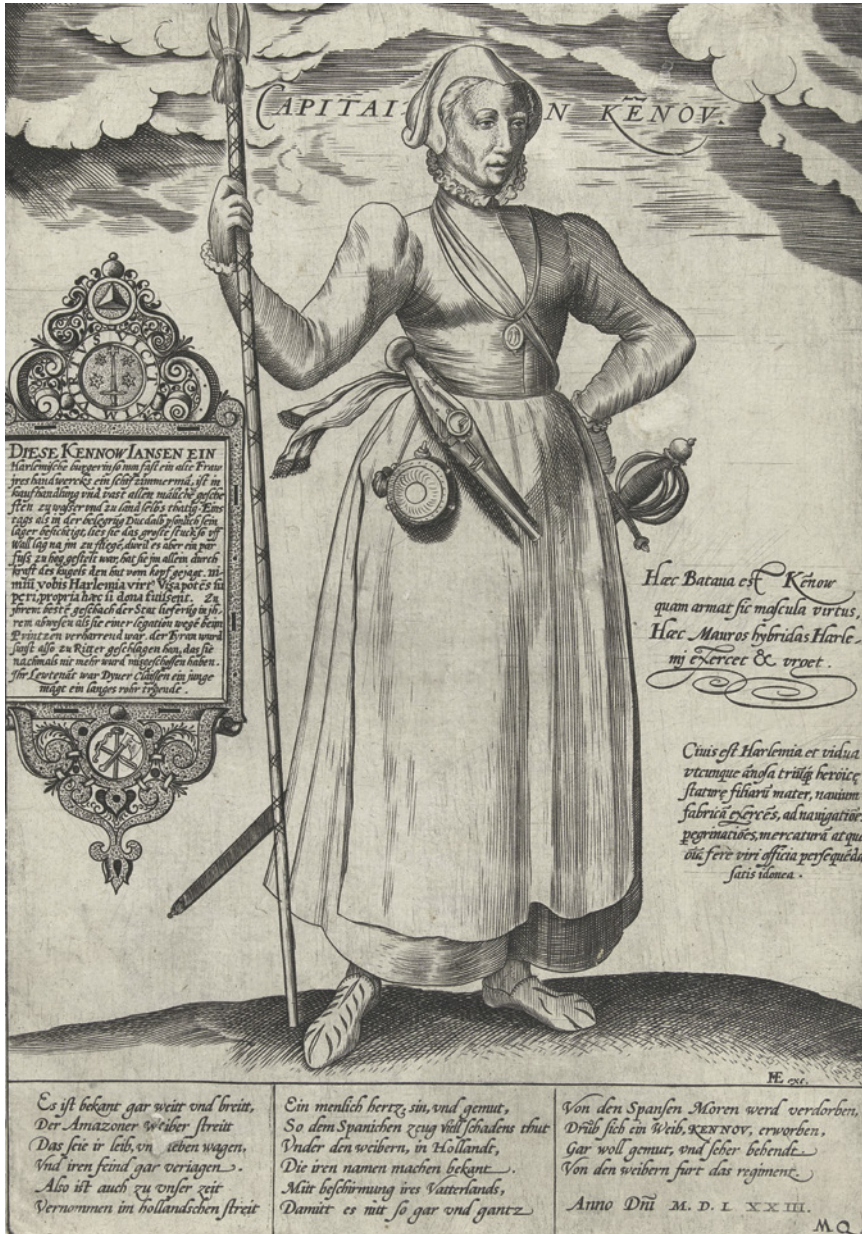 CAPITAIN KĒNOV.
DIESE KENNOW IANSEN EIN
Harlemische burgerin so nun fast ein alte Fraw
jres handwercks ein schif zimmermā, ist in
kaufhandlung vnd vast allen māliche gesche
ften zu wasser vnd zu land selbs thatig. Eins
tags als in der belegrūg Ducdalb psönlich sein
läger besichtigt, lies sie das groste stuck so vff
Wall lag na jm zu fliegē, diweil es aber ein par
fuss zu hog gestelt war, hat sie jm allein durch
kraft des kugels den hut vom kopf gejagt.
vobis Harlemia viri
peri, propria hæc si dona fuissent. Zu
jhrem bestē geschach der Stat lieferūg in jh-
rem abwesen als sie einer legation wegē beim
Printzen verharrend war. der Tyran wurd
sunst also zu Ritter geschlagen han, das sie
nachmals nit mehr wurd misgeschossen haben.
Jhr Leutenāt war Dyuer Claessen ein junge
magt ein langes rohr trgende.
Hæc Bataua est Kēnow
quam armat sic mascula virtus,
Hæc Mauros hybridas Harle-
mj exercet & vrget.
Ciuis est Harlemia et vidua
vtcunque ānosa triūq̃ heroicę
staturę filiarū mater, nauium
fabricā exercēs, ad nauigatiōes
pegrinatiōes, mercaturā atque
oīa fere viri officia persequēda
satis idonea.
HE exc.
Es ist bekant gar weitt vnd breitt,
Der Amazoner weiber streitt
Das seie ir leib, vn leben wagen,
Vnd iren feind gar veriagen.
Also ist auch zu vnser zeit
Vernommen im hollandschen streit
Ein menlich hertz, sin, vnd gemut,
So dem Spanichen zeug viell schadens thut
Vnder den weibern, in Hollandt,
Die iren namen machen bekant.
Mitt beschirmung ires Vatterlands,
Damitt es nitt so gar vnd gantz
Von den Spansen Moren werd verdorben,
Drūb sich ein Weib, KENNOV, erworben,
Gar woll gemut, vnd seher behendt
Von den weibern furt das regiment.
Anno Dnī M. D. L XXIII.
MQ